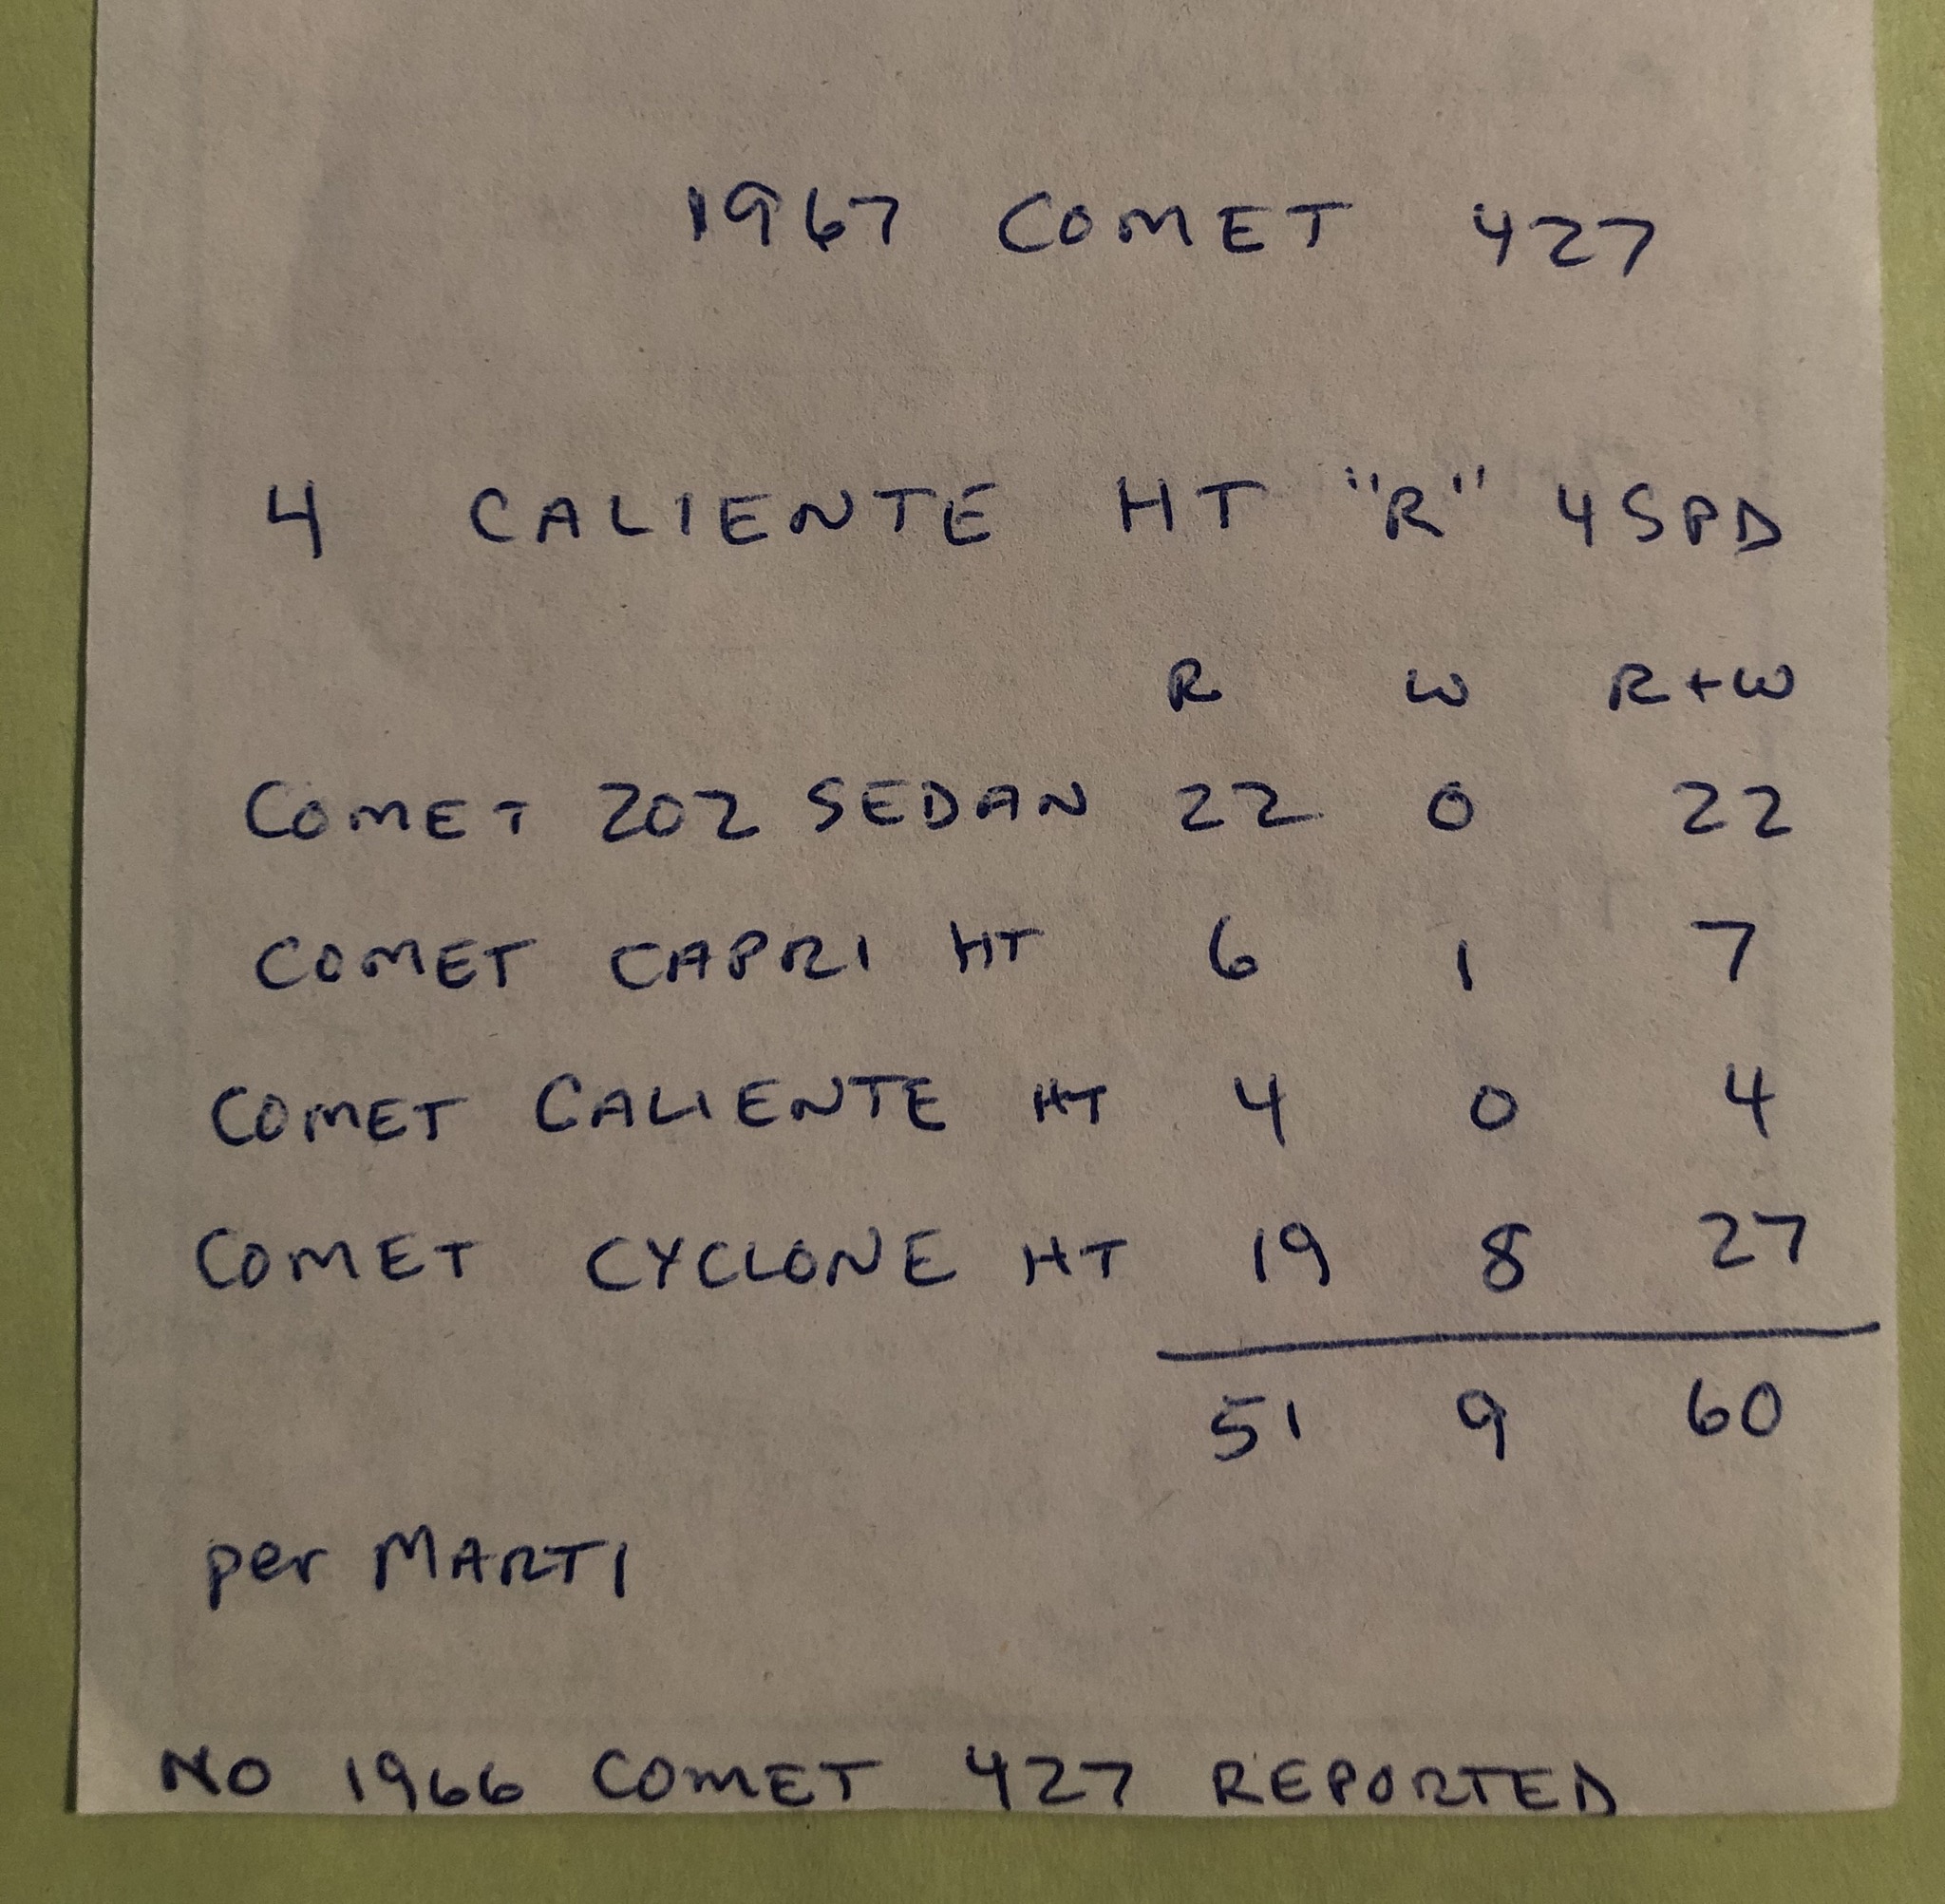 1967 COMET 427
4 CALIENTE HT "R" 4SPD
R W R+W
COMET 202 SEDAN 22 0 22
COMET CAPRI HT 6 1 7
COMET CALIENTE HT 4 0 4
COMET CYCLONE HT 19 8 27
51 9 60
per MARTI
NO 1966 COMET 427 REPORTED